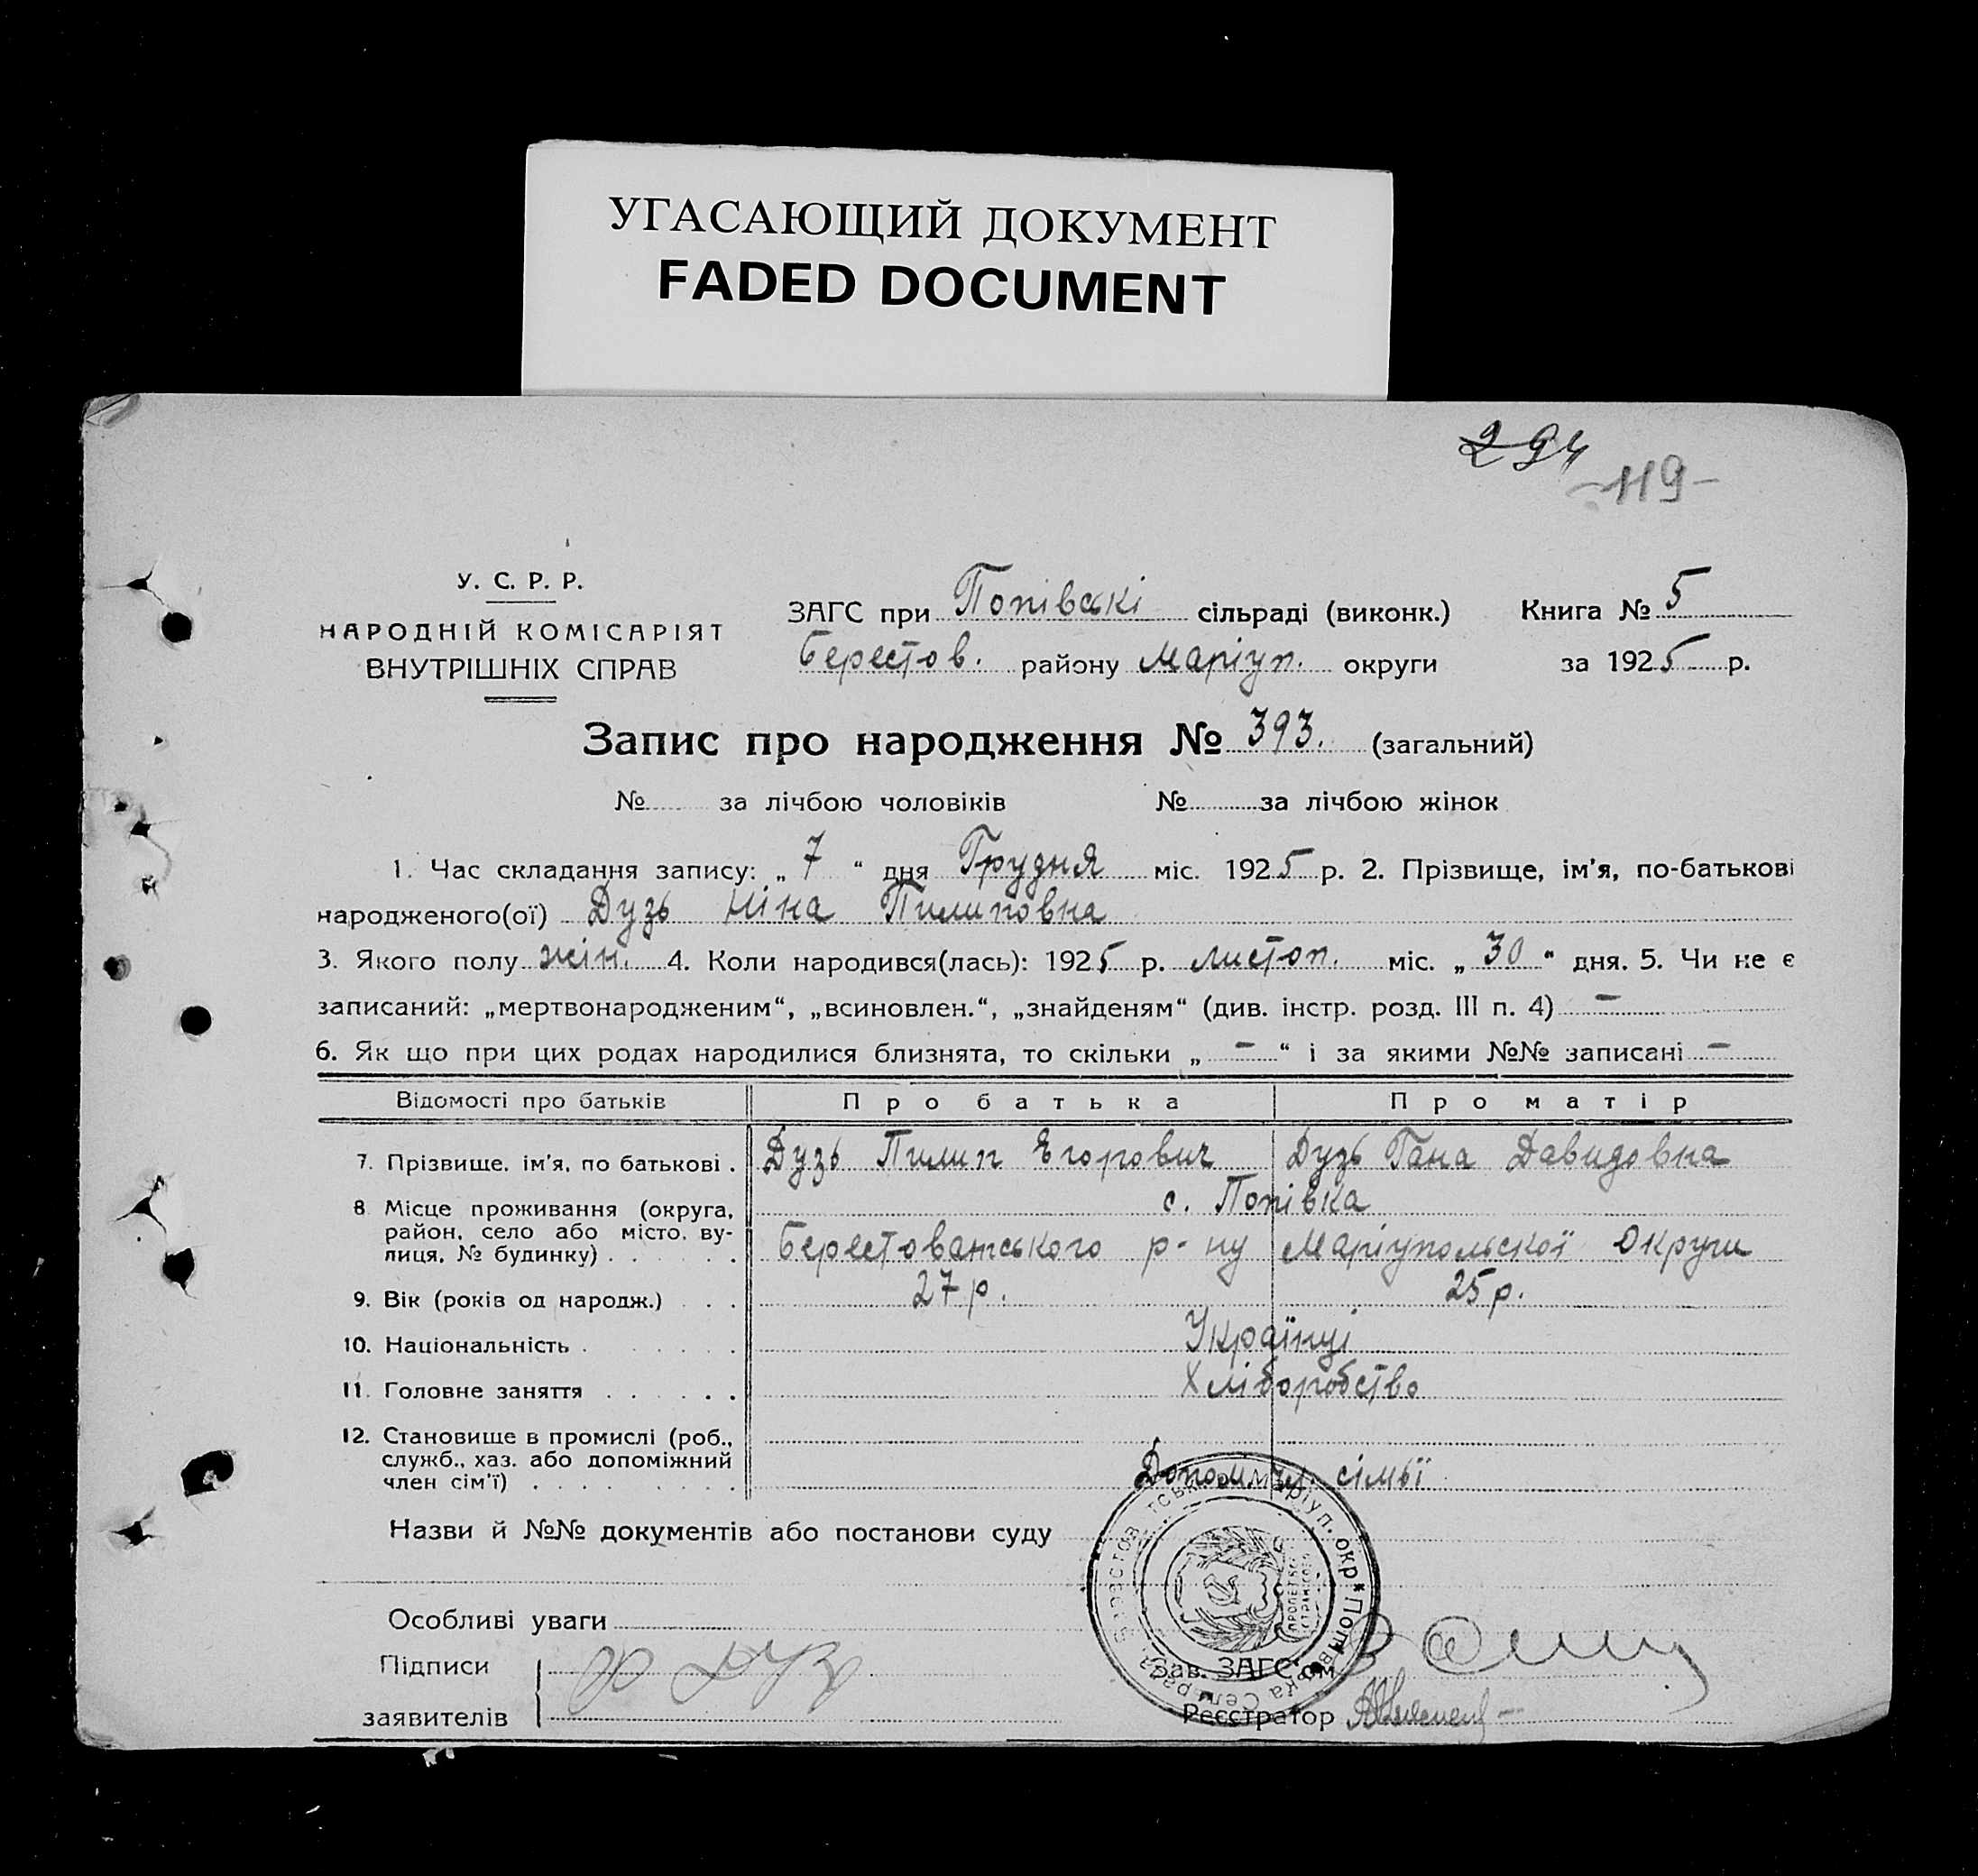 УГАСАЮЩИЙ ДОКУМЕНТ
FADED DOCUMENT
294
-119-
У. С. Р. Р.
НАРОДНІЙ КОМІСАРІЯТ
ВНУТРІШНІХ СПРАВ
ЗАГС при Попівскі сільраді (виконк.) Книга № 5
Берестов. району Маріуп. округи за 1925 р.
Запис про народження № 393. (загальний)
№ за лічбою чоловіків № за лічбою жінок
1. Час складання запису: „ 7 “ дня Грудня міс. 1925 р. 2. Прізвище, ім'я, по-батькові
народженого(ої) Дузь Ніна Пилиповна
3. Якого полу жін. 4. Коли народився(лась): 1925 р. листоп. міс. „ 30 “ дня. 5. Чи не є
записаний: „мертвонародженим“, „всиновлен.“, „знайденям“ (див. інстр. розд. III п. 4) –
6. Як що при цих родах народилися близнята, то скільки „ – “ і за якими №№ записані –
Відомості про батьків Про батька Про матір
7. Прізвище, ім'я, по батькові . Дузь Пилип Єгорович Дузь Гана Давидовна
8 Місце проживання (округа, с. Попівка
район, село або місто, ву-
лиця, № будинку) . . . . . Берестованського р-ну Маріупольскої Округи
9. Вік (років од народж.) . . . 27 р. 25 р.
10. Національність . . . . . . Українці
11. Головне заняття . . . . . . Хліборобство
12. Становище в промислі (роб.,
служб., хаз. або допоміжний
член сім'ї) . . . . . . . . сімьї
Назви й №№ документів або постанови суду
Особливі уваги
Підписи
заявителів
Зав. ЗАГС'ом
Реєстратор
Маріуп. окр * Попівська Сельрада